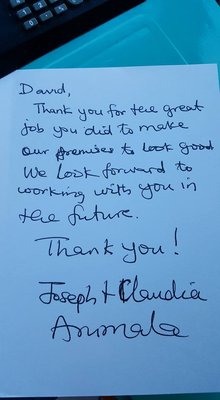 David,
Thank you for the great
job you did to make
our premises to look good
We look forward to
working with you in
the future.
Thank you!
Joseph + Claudia